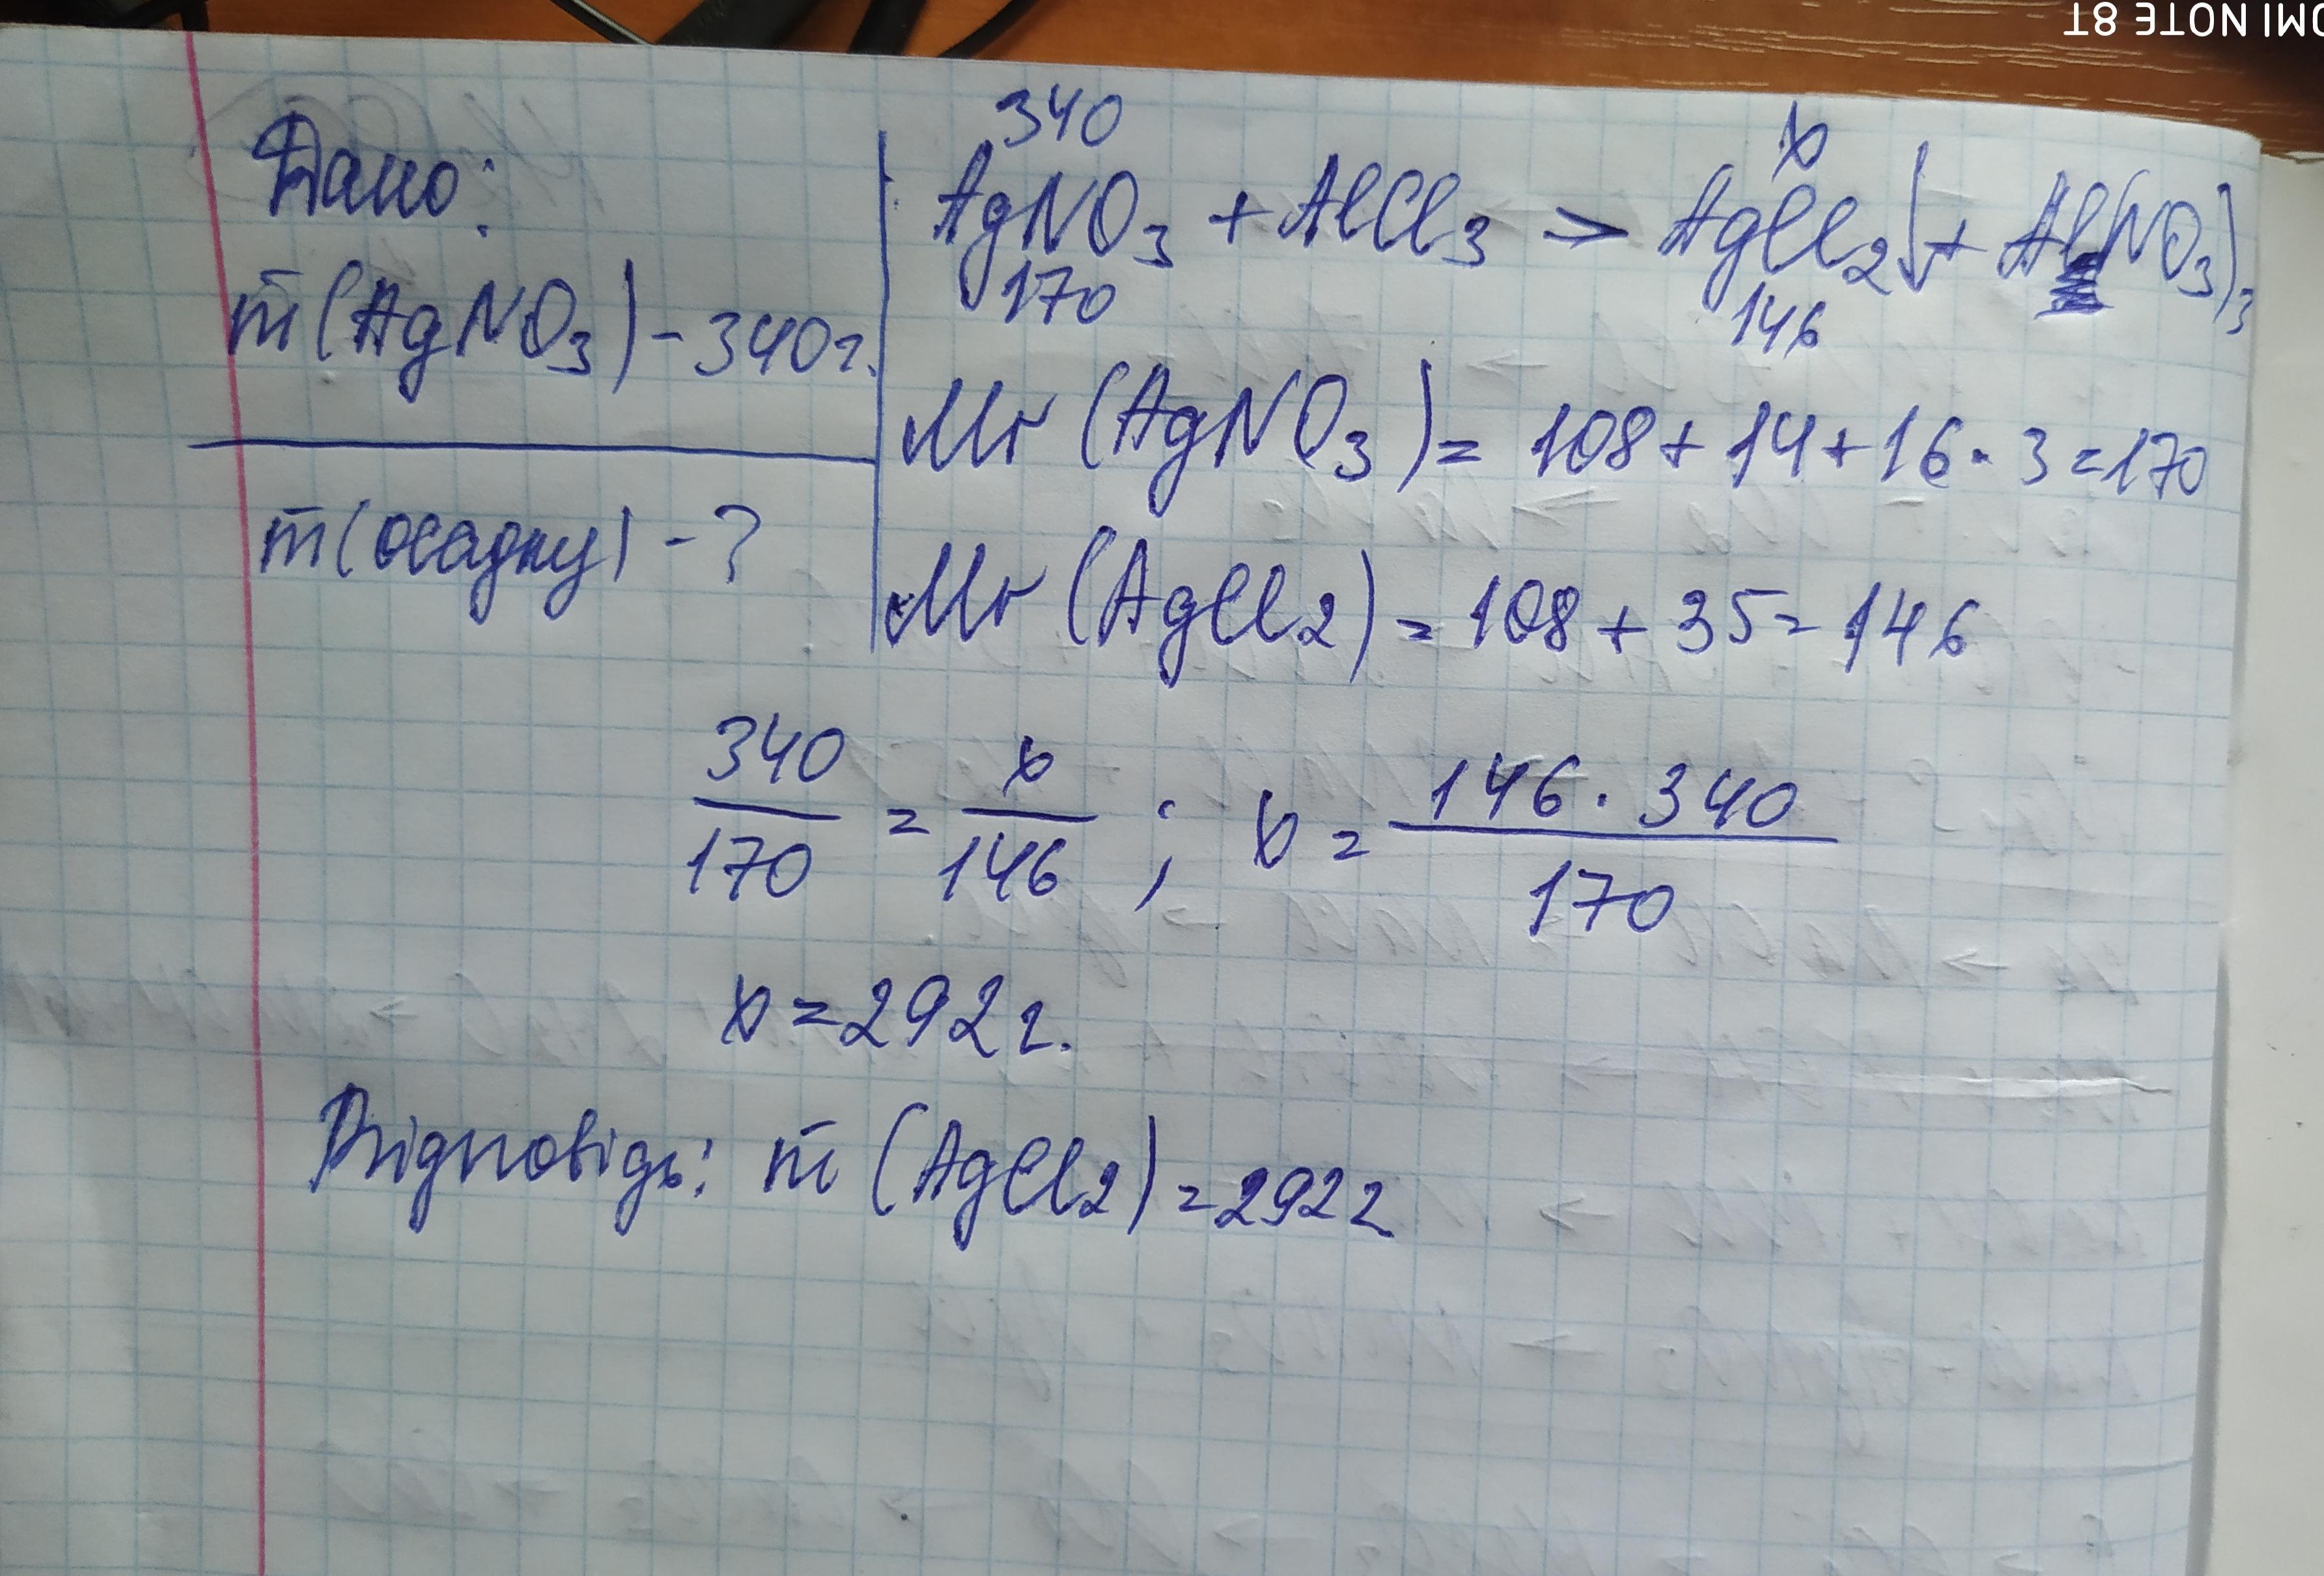 Дано:
m(AgNO3) - 340г.
m(осадку) - ?
340 x
AgNO3 + AlCl3 => AgCl2↓ + Al(NO3)3
170 146
Mr (AgNO3) = 108 + 14 + 16 · 3 = 170
Mr (AgCl2) = 108 + 35 = 146
340/170 = x/146 ; x = 146 · 340/170
x = 292 г.
Відповідь: m (AgCl2) = 292г